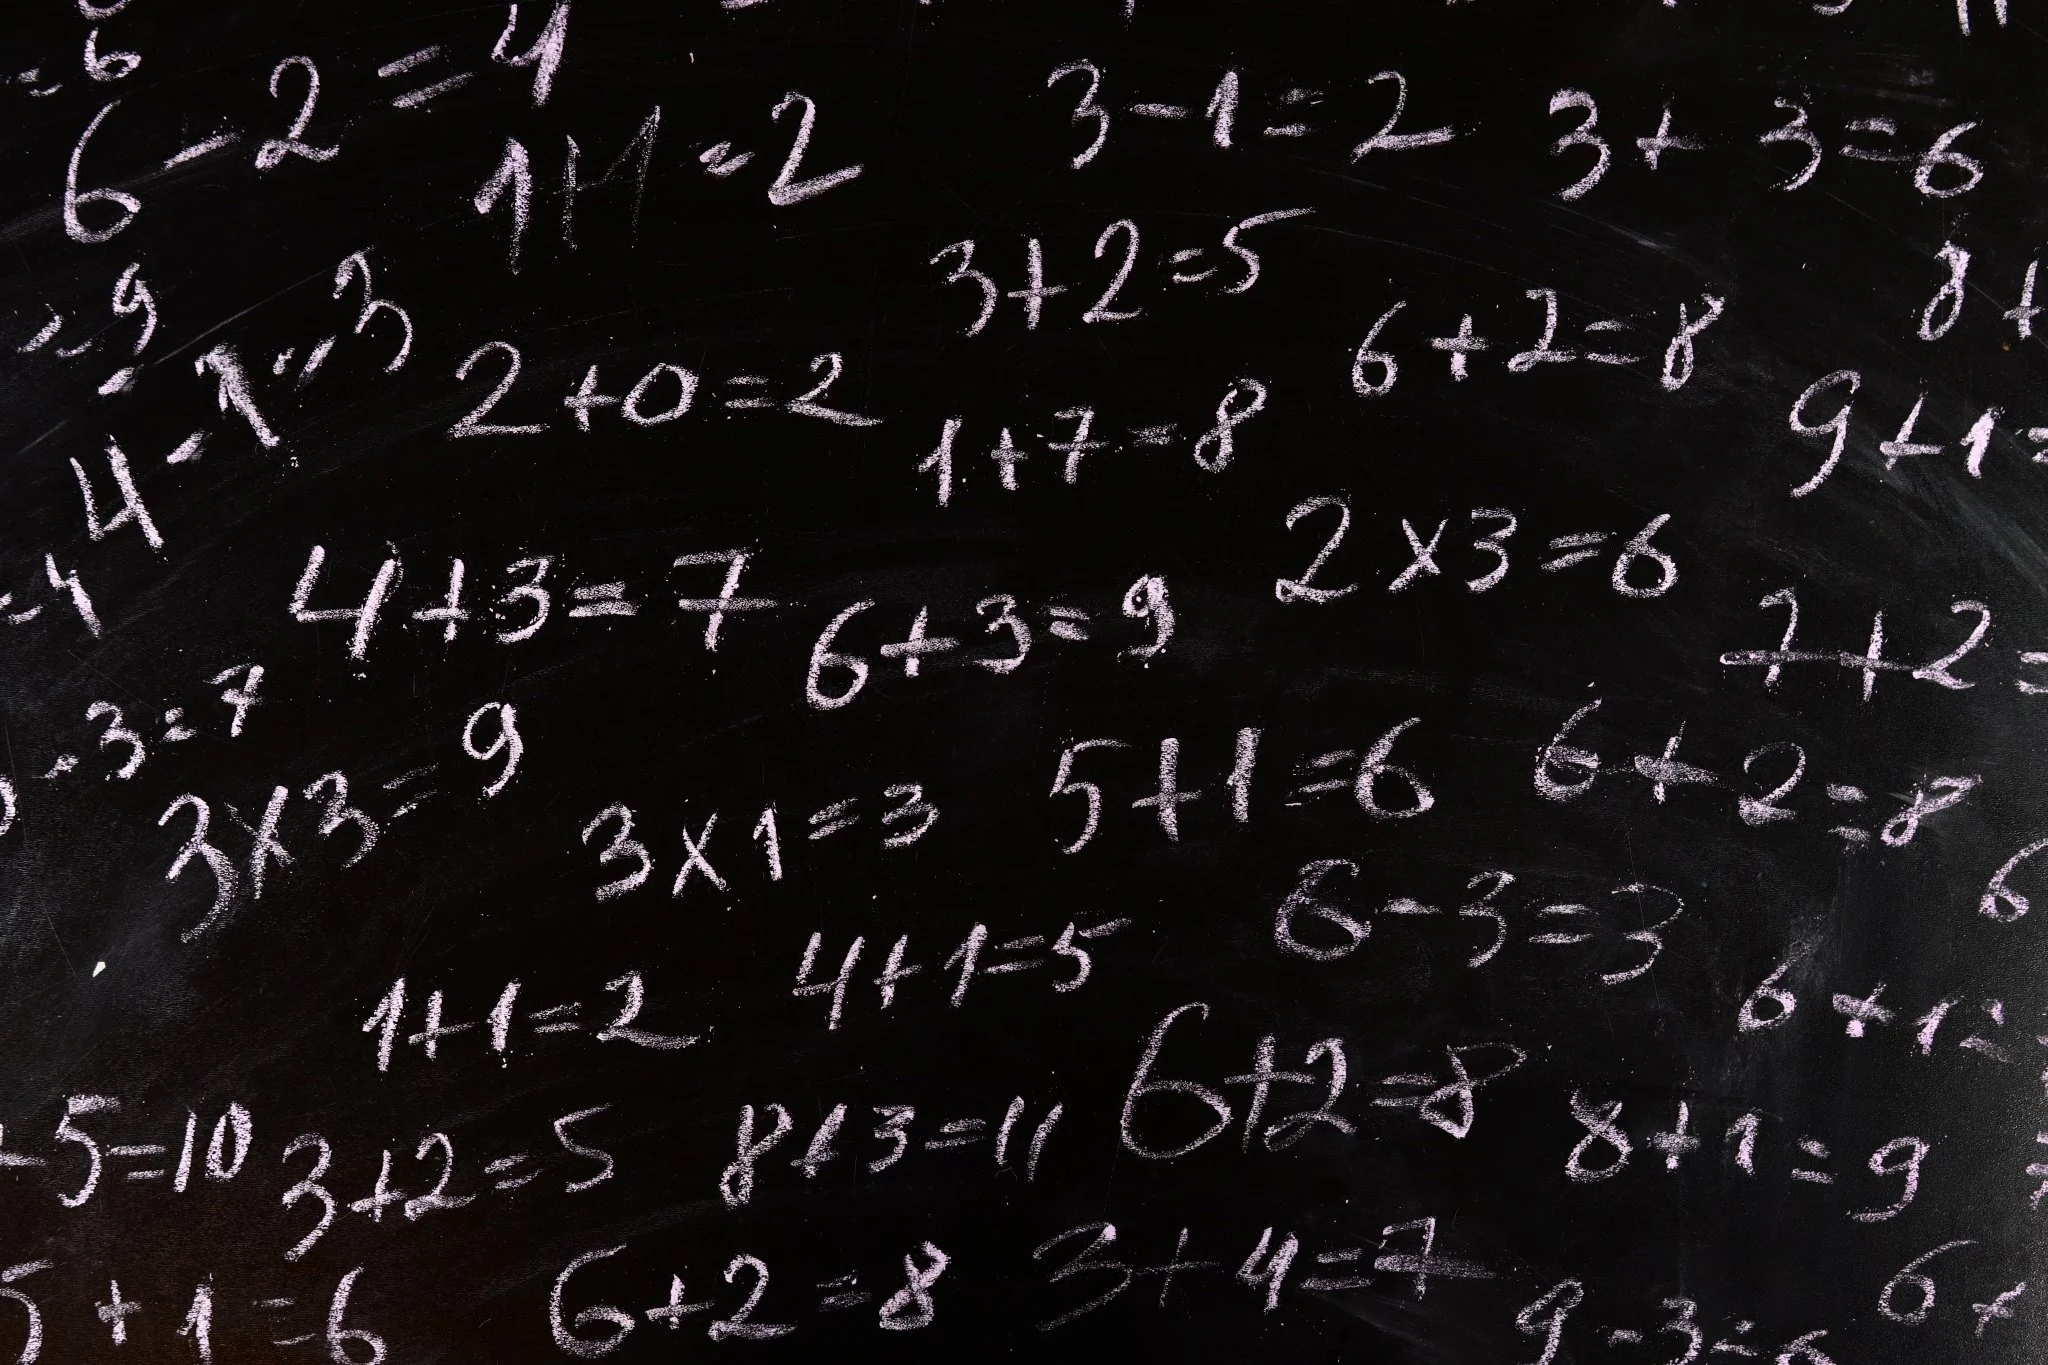 = 6
6 - 2 = 4
1+1 = 2
3 - 1 = 2
3 + 3 = 6
= 9
4 - 1 = 3
2 + 0 = 2
3 + 2 = 5
1 + 7 = 8
6 + 2 = 8
8 +
9 + 1 =
= 4
4 + 3 = 7
6 + 3 = 9
2 x 3 = 6
7 + 2 =
3 = 7
3 x 3 = 9
3 x 1 = 3
5 + 1 = 6
6 + 2 = 8
6 - 3 = 3
6
1 + 1 = 2
4 + 1 = 5
6 + 1 =
+ 5 = 10
3 + 2 = 5
8 + 3 = 11
6 + 2 = 8
8 + 1 = 9
5 + 1 = 6
6 + 2 = 8
3 + 4 = 7
9 - 3 = 6
6 +